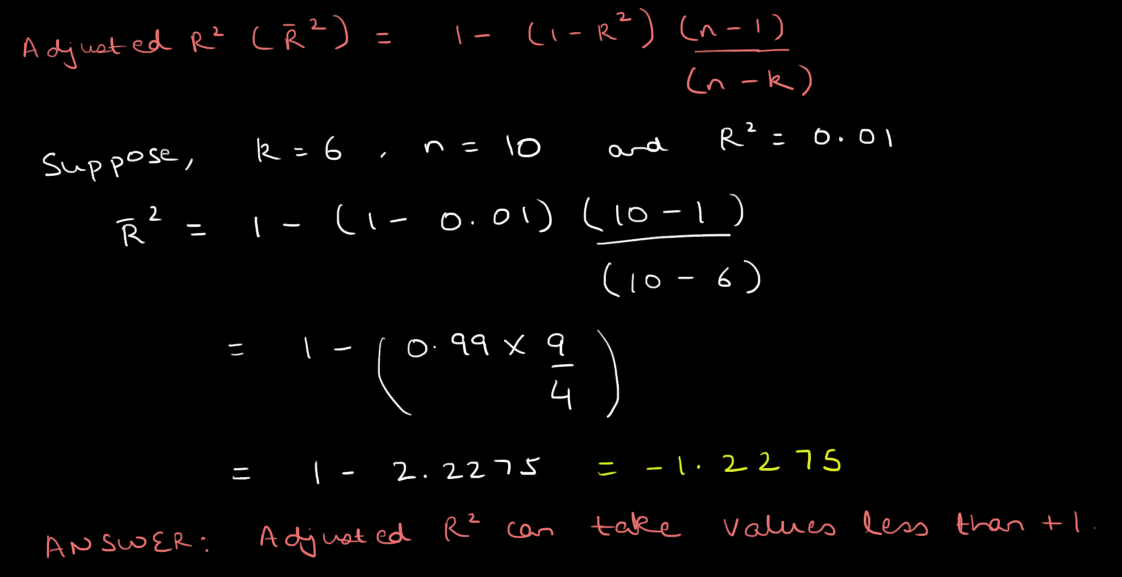 Adjusted R² (R̄²) = 1 - (1 - R²) (n - 1)
(n - k)
Suppose, k = 6 , n = 10 and R² = 0.01
R̄² = 1 - (1 - 0.01) (10 - 1)
(10 - 6)
= 1 - (0.99 × 9
4)
= 1 - 2.2275 = -1.2275
ANSWER: Adjusted R² can take values less than +1.